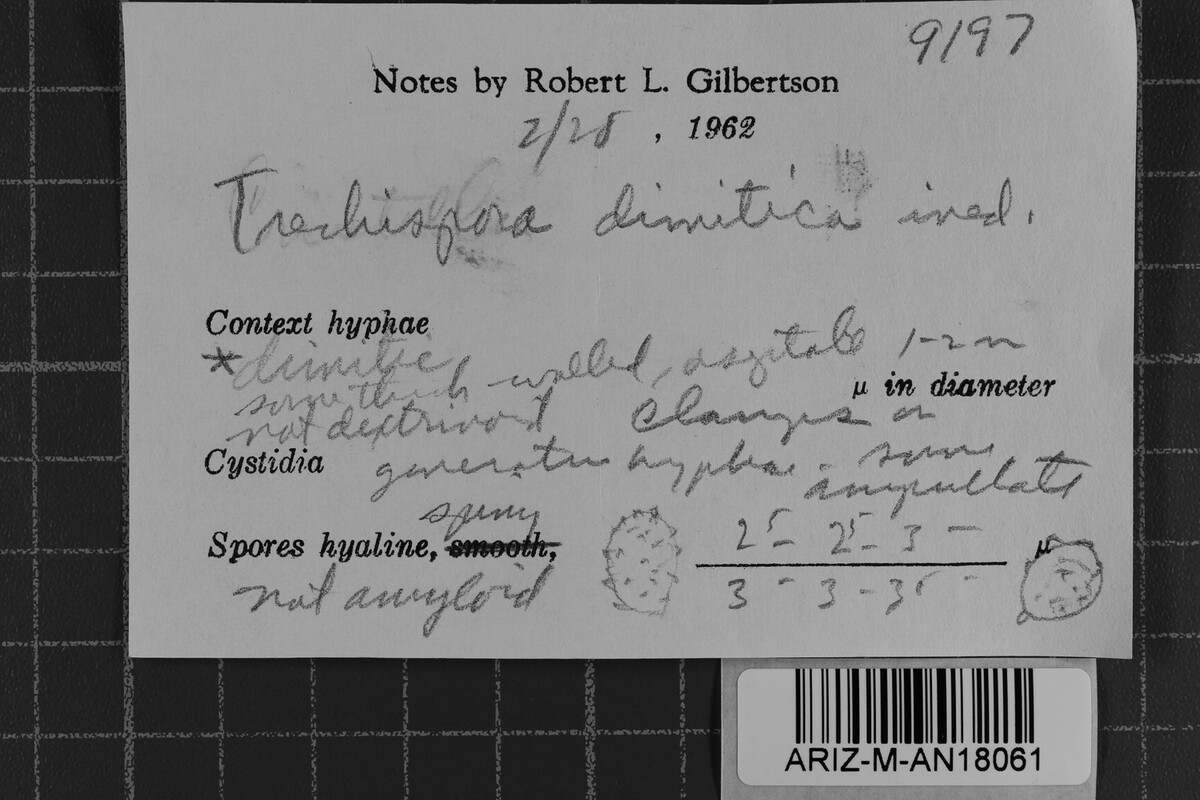 9197
Notes by Robert L. Gilbertson
2/28, 1962
Trechispora dimitica ined.
Context hyphae
*dimitic,
some thick-walled, aseptate 1-2
μ in diameter
not dextrinoid Clamps on
Cystidia generative hyphae - some
ampullate
spiny
Spores hyaline, smooth,
2⁵- 2⁵- 3 - μ
not amyloid 3 - 3 - 3⁵ -
ARIZ-M-AN18061